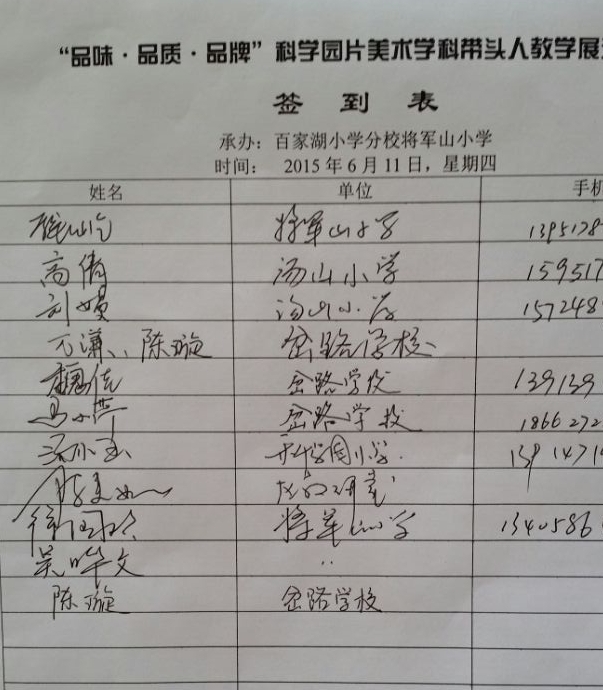 “品味·品质·品牌”科学园片美术学科带头人教学展
签 到 表
承办：百家湖小学分校将军山小学
时间： 2015年6月11日，星期四
姓名 单位 手机
将军山小学 1395128
高倩 汤山小学 159517
刘 汤山小学 157248
万谦、陈璇 岔路学校
魏佳 岔路学校 139139
马小燕 岔路学校 1866272
科学园小学 1391471
徐 将军山小学 1340586
吴晔文 ..
陈璇 岔路学校